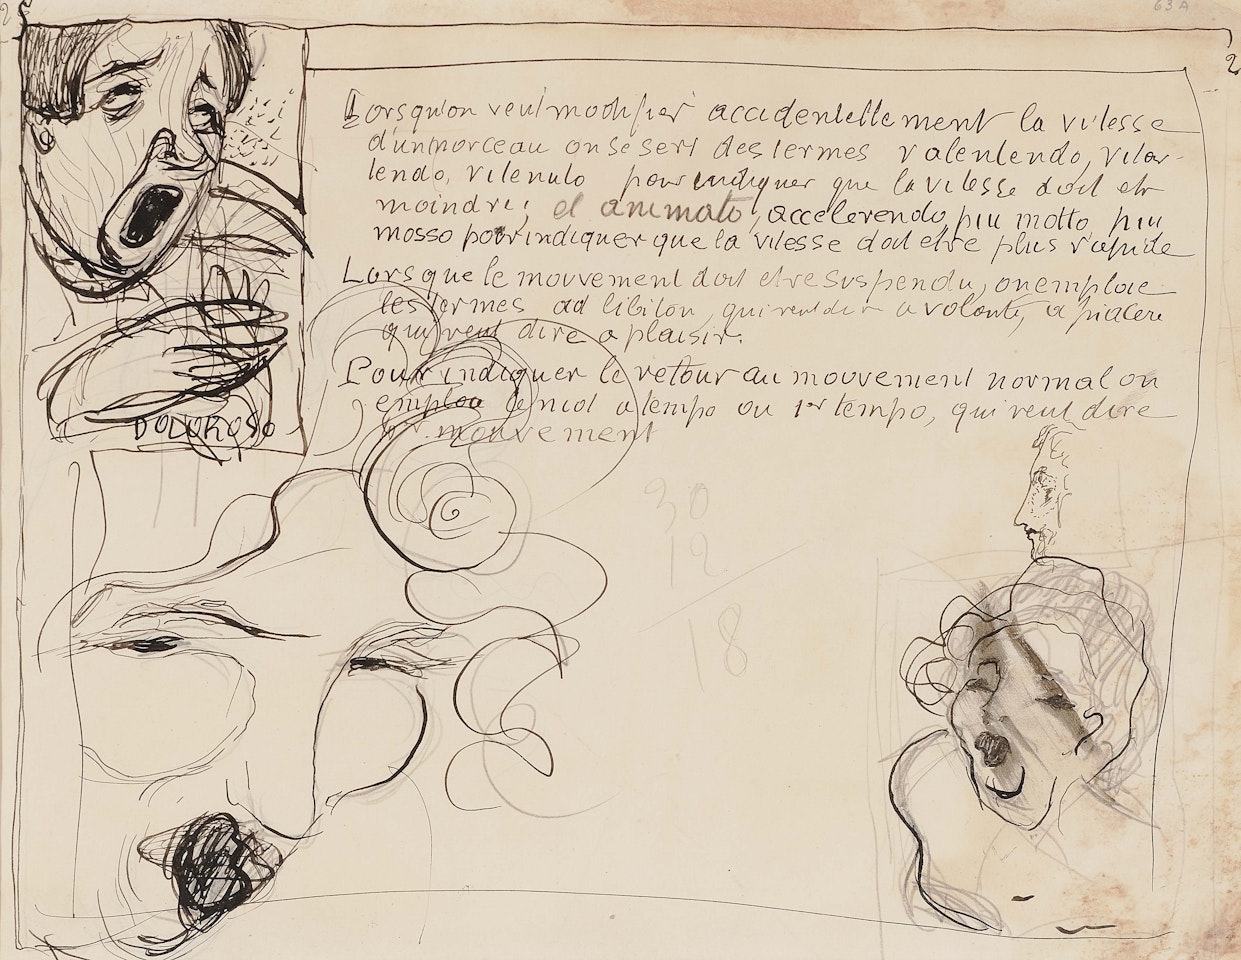 63A
2
2
Lorsqu'on veut modifier accidentellement la vitesse
d'un morceau on se sert des termes ralentendo, ritar-
tendo, ritenuto pour indiquer que la vitesse doit etr
moindre; et animato, accelerendo, piu motto piu
mosso pour indiquer que la vitesse doit etre plus rapide
Lorsque le mouvement doit etre suspendu, on emploie
les termes ad libiton, qui veut dir a volonté, a piacere
qui veut dire a plaisir.
Pour indiquer le retour au mouvement normal on
emploa le mot a tempo ou 1er tempo, qui veut dire
mouvement
DOLOROSO
30
12
18